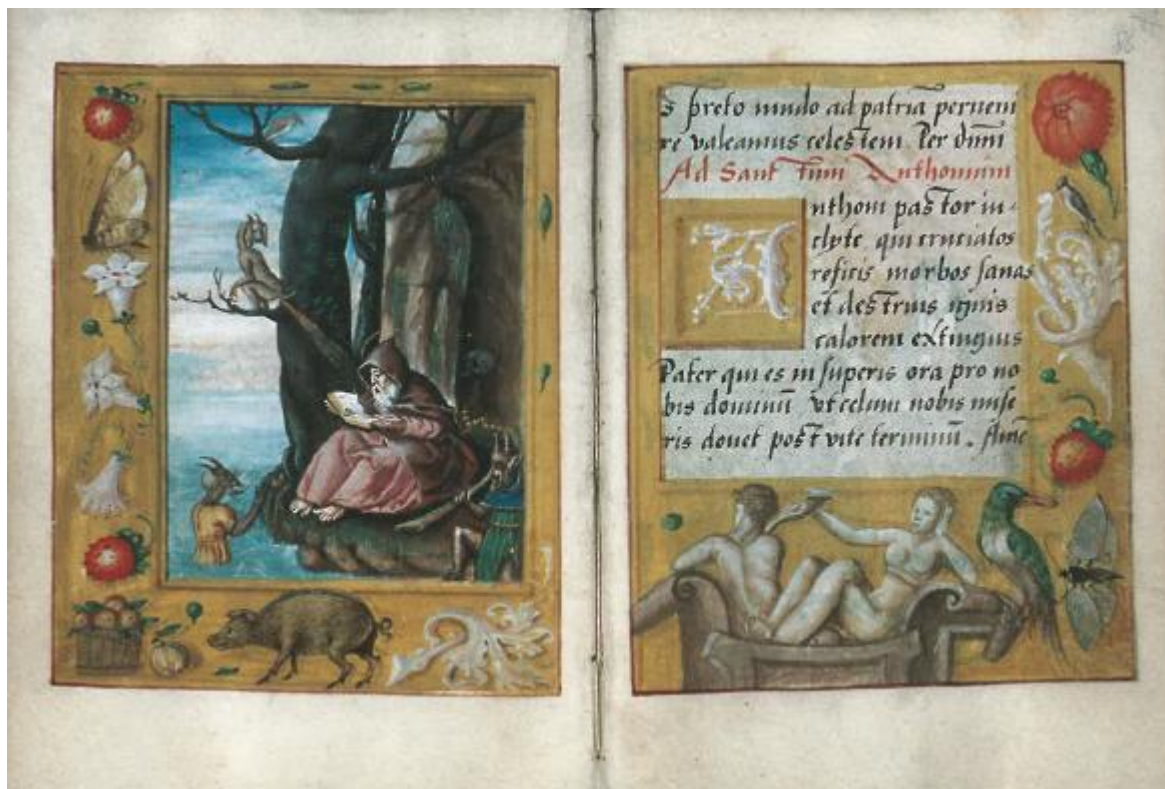 s spreto mudo ad patria perveni
re valeamus celestem. Per dnm
Ad Sanctum Anthonium
nthoni pastor in-
clyte qui cruciatos
reficis morbos sanas
et destruis ignis
calorem extinguis
Pater qui es in superis ora pro no
bis dominū vt celum nobis mise
ris donet post vite terminū. Amē